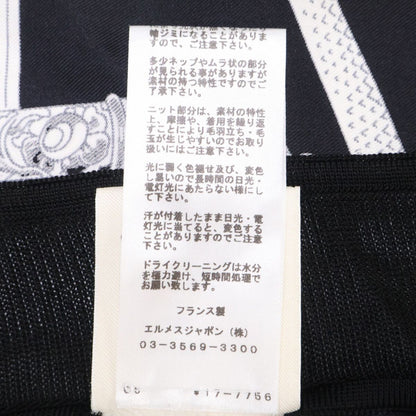 軽ジミになることがありま
すので、ご注意下さい。
多少ネップやムラ状の部分
が見られる事がありますが
素材の持つ特性ですので
ご了承下さい。
ニット部分は、素材の特性
上、摩擦や、着用を繰り返
すことにより毛羽立ち・毛
玉が生じやすいのでお取り
扱いにはご注意下さい。
光に弱く色褪せ及び、変色
し易いので長時間の日光・
電灯光にあたらない様にし
て下さい。
汗が付着したまま日光・電
灯光に当てると、変色する
ことがありますので、ご注
意下さい。
ドライクリーニングは水分
を極力避け、短時間処理で
お願い致します。
フランス製
エルメスジャポン(株)
03-3569-3300
17-7756